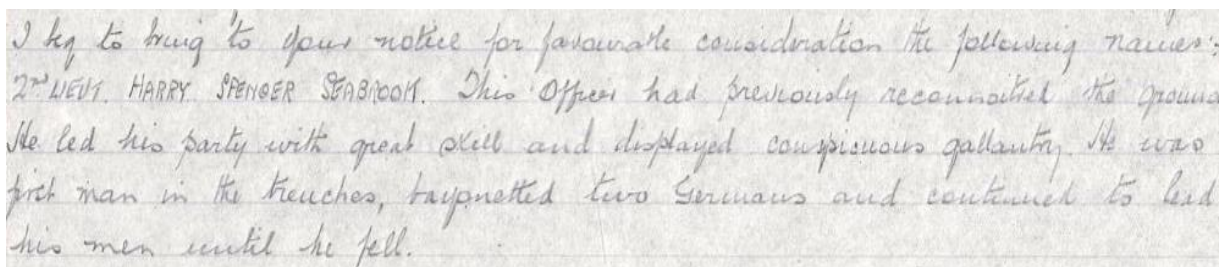 I beg to bring to your notice for favourable consideration the following names:-
2nd LIEUT. HARRY SPENCER SEABROOK. This Officer had previously reconnoitred the ground
He led his party with great skill and displayed conspicuous gallantry. He was
first man in the trenches, bayonetted two Germans and continued to lead
his men until he fell.